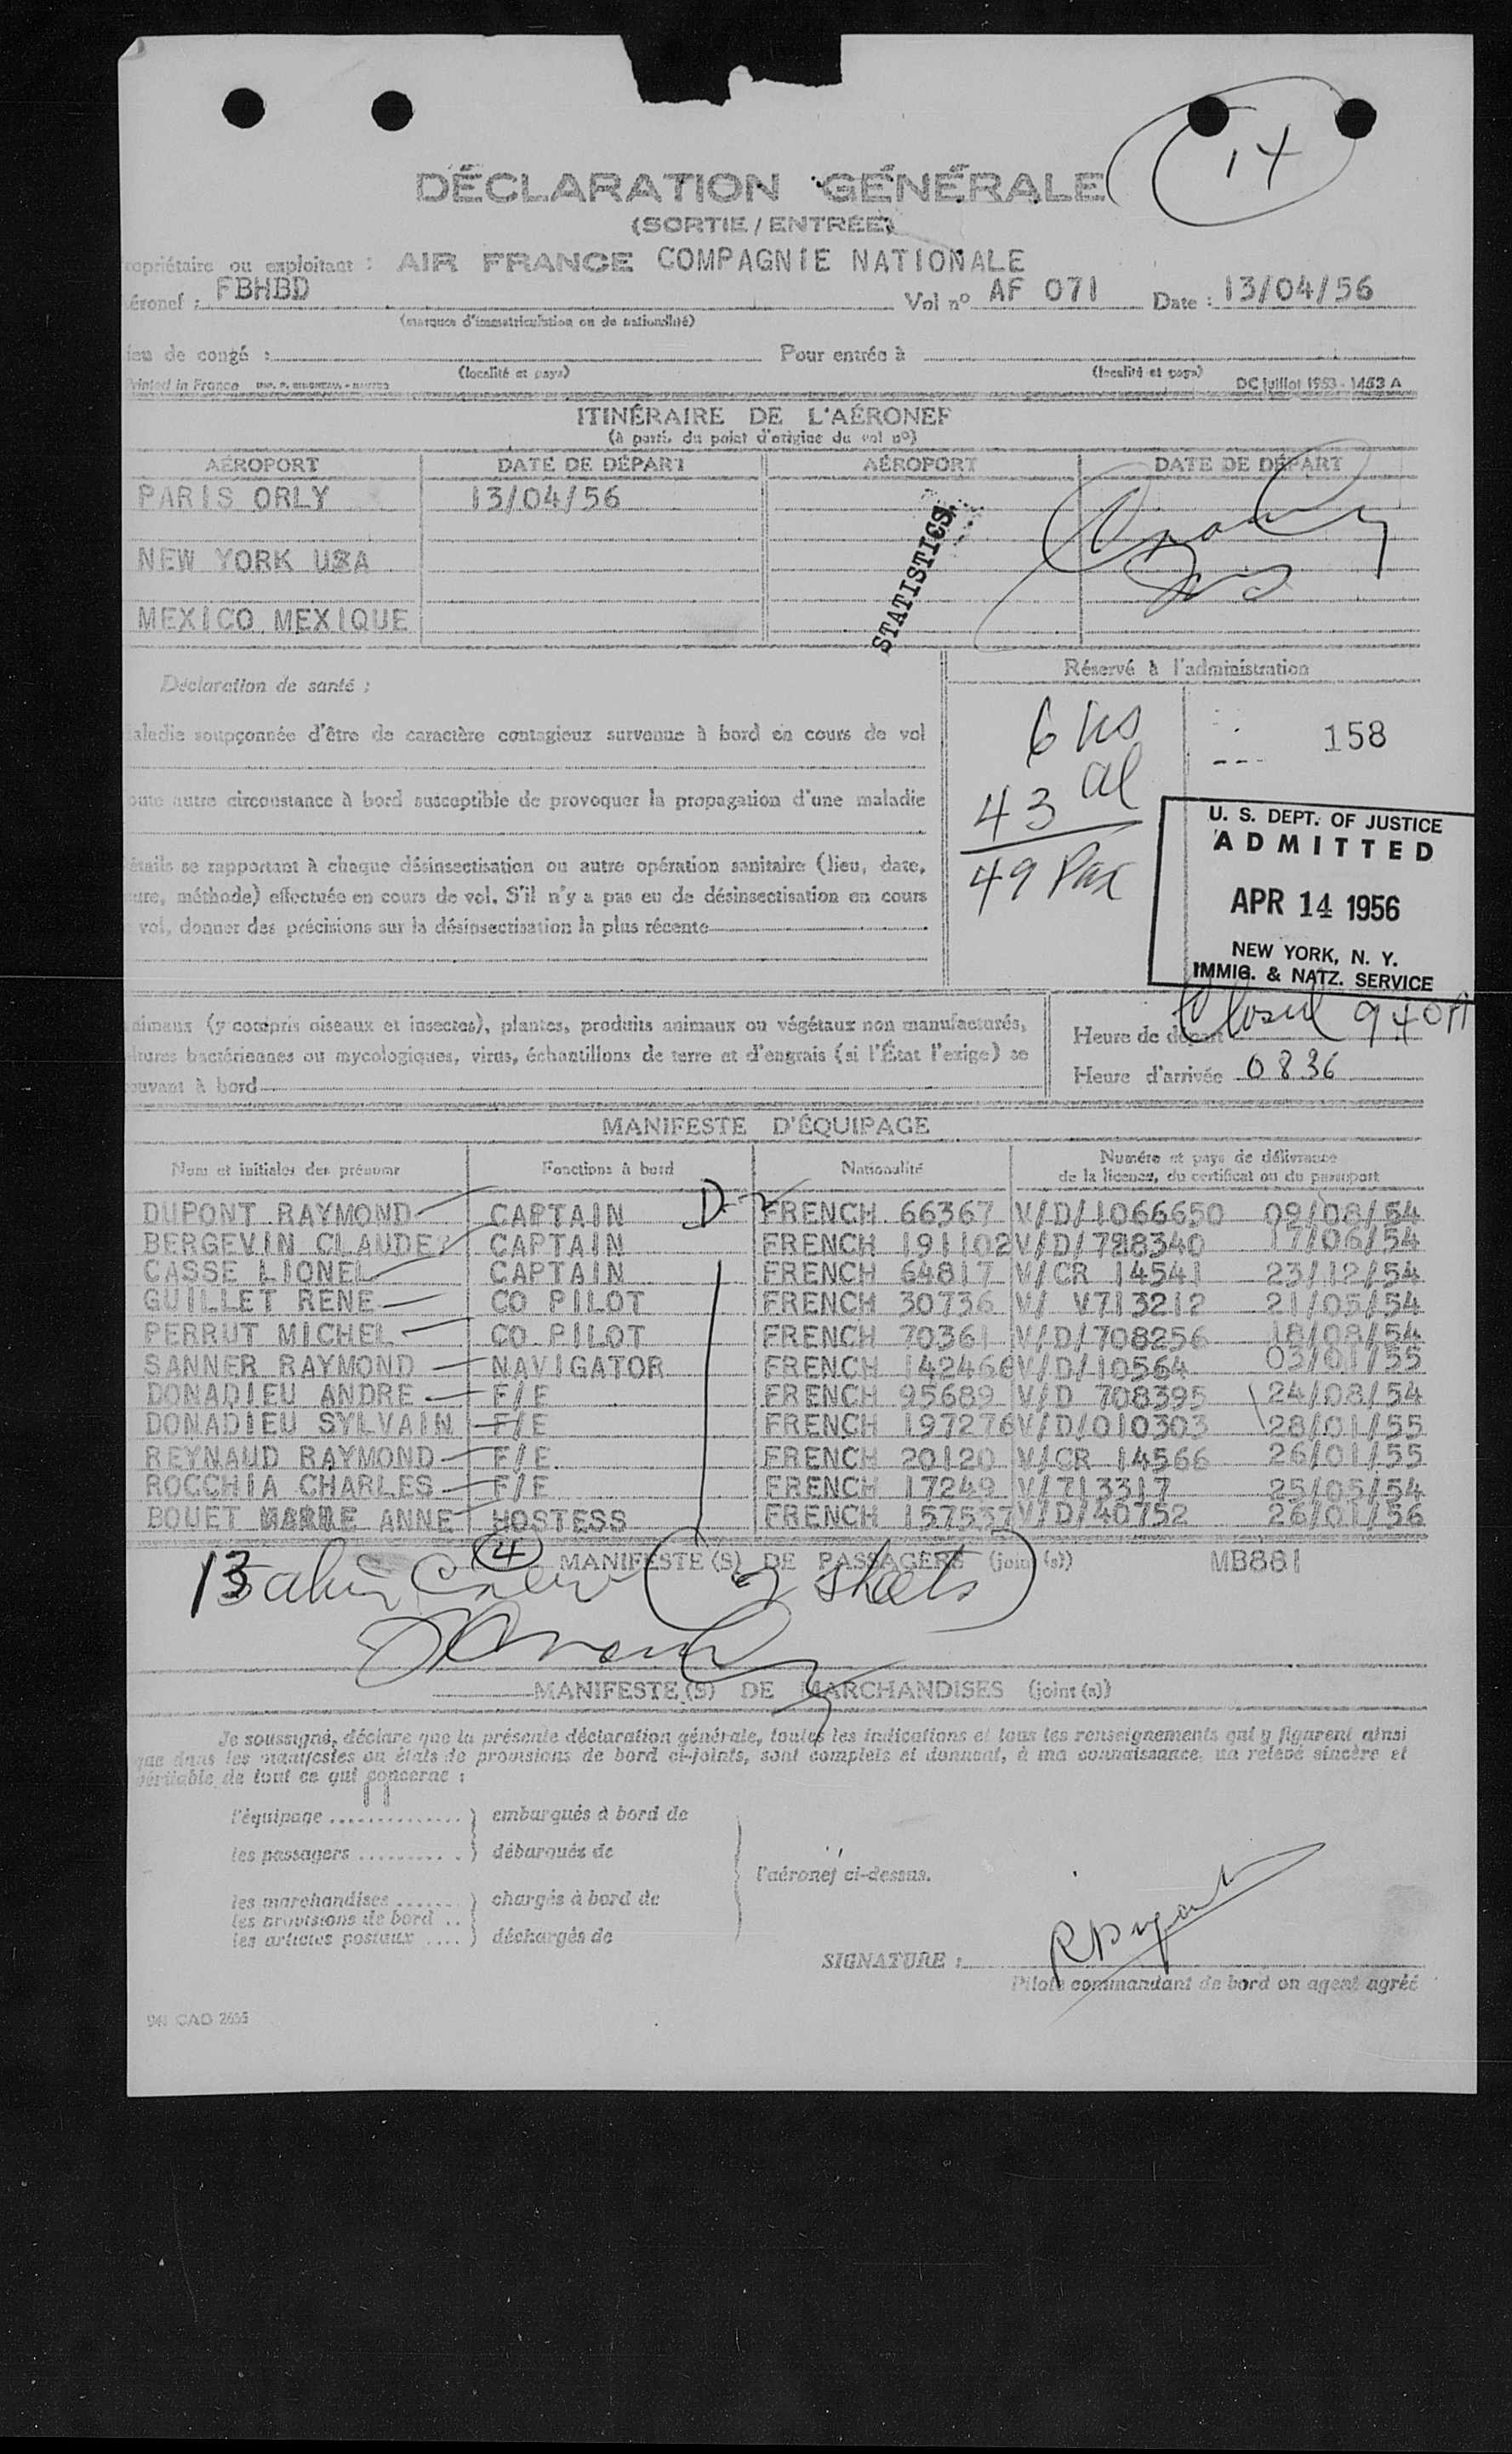 14
DÉCLARATION GÉNÉRALE
(SORTIE / ENTRÉE)
ropriétaire ou exploitant : AIR FRANCE COMPAGNIE NATIONALE
éronef : FBHBD Vol nº AF 071 Date : 13/04/56
(marques d'immatriculation ou de nationalité)
ieu de congé : Pour entrée à
(localité et pays) (localité et pays)
Printed in France DC juillot 1953 - 1453 A
ITINÉRAIRE DE L'AÉRONEF
(à parti. du point d'origine du vol nº)
AÉROPORT DATE DE DÉPART AÉROPORT DATE DE DÉPART
PARIS ORLY 13/04/56
STATISTICS
NEW YORK USA
MEXICO MEXIQUE
Réservé à l'administration
Déclaration de santé :
aladie soupçonnée d'être de caractère contagieux survenue à bord en cours de vol
6 us 158
oute autre circonstance à bord susceptible de provoquer la propagation d'une maladie
43 al
49 Pax
U. S. DEPT. OF JUSTICE
ADMITTED
APR 14 1956
NEW YORK, N. Y.
IMMIG. & NATZ. SERVICE
étails se rapportant à chaque désinsectisation ou autre opération sanitaire (lieu, date,
ure, méthode) effectuée en cours de vol. S'il n'y a pas eu de désinsectisation en cours
vol, donner des précisions sur la désinsectisation la plus récente
nimaux (y compris oiseaux et insectes), plantes, produits animaux ou végétaux non manufacturés,
ltures bactériennes ou mycologiques, virus, échantillons de terre et d'engrais (si l'État l'exige) se
ouvant à bord
Closed 940A
Heure de départ
Heure d'arrivée 0836
MANIFESTE D'ÉQUIPAGE
Nom et initiales des prénoms Fonctions à bord Nationalité Numéro et pays de délivrance
de la licence, du certificat ou du passeport
DUPONT RAYMOND CAPTAIN FRENCH 66367 V/D/1066650 09/08/54
BERGEVIN CLAUDE CAPTAIN FRENCH 191102 V/D/728340 17/06/54
CASSE LIONEL CAPTAIN FRENCH 64817 V/CR 14541 23/12/54
GUILLET RENE CO PILOT FRENCH 30736 V/ V713212 21/05/54
PERRUT MICHEL CO PILOT FRENCH 70361 V/D/708256 18/08/54
SANNER RAYMOND NAVIGATOR FRENCH 142466 V/D/10564 03/01/55
DONADIEU ANDRE F/E FRENCH 95689 V/D 708395 24/08/54
DONADIEU SYLVAIN F/E FRENCH 197276 V/D/010303 28/01/55
REYNAUD RAYMOND F/E FRENCH 20120 V/CR 14566 26/01/55
ROCCHIA CHARLES F/E FRENCH 17249 V/713317 25/05/54
BOUET MARIE ANNE HOSTESS FRENCH 157537 V/D/40752 26/01/56
4 MANIFESTE (S) DE PASSAGERS (joint (s)) MB881
13 alien Crew (2 sheets)
MANIFESTE (S) DE MARCHANDISES (joint (s))
Je soussigné, déclare que la présente déclaration générale, toutes les indications et tous les renseignements qui y figurent ainsi
que dans les manifestes ou états de provisions de bord ci-joints, sont complets et donnent, à ma connaissance, un relevé sincère et
véritable de tout ce qui concerne :
11
l'équipage .............. ) embarqués à bord de
les passagers .......... ) débarqués de
l'aéronef ci-dessus.
les marchandises ....... ) chargés à bord de
les provisions de bord ..
les articles postaux .... ) déchargés de
SIGNATURE :
Pilote commandant de bord ou agent agréé